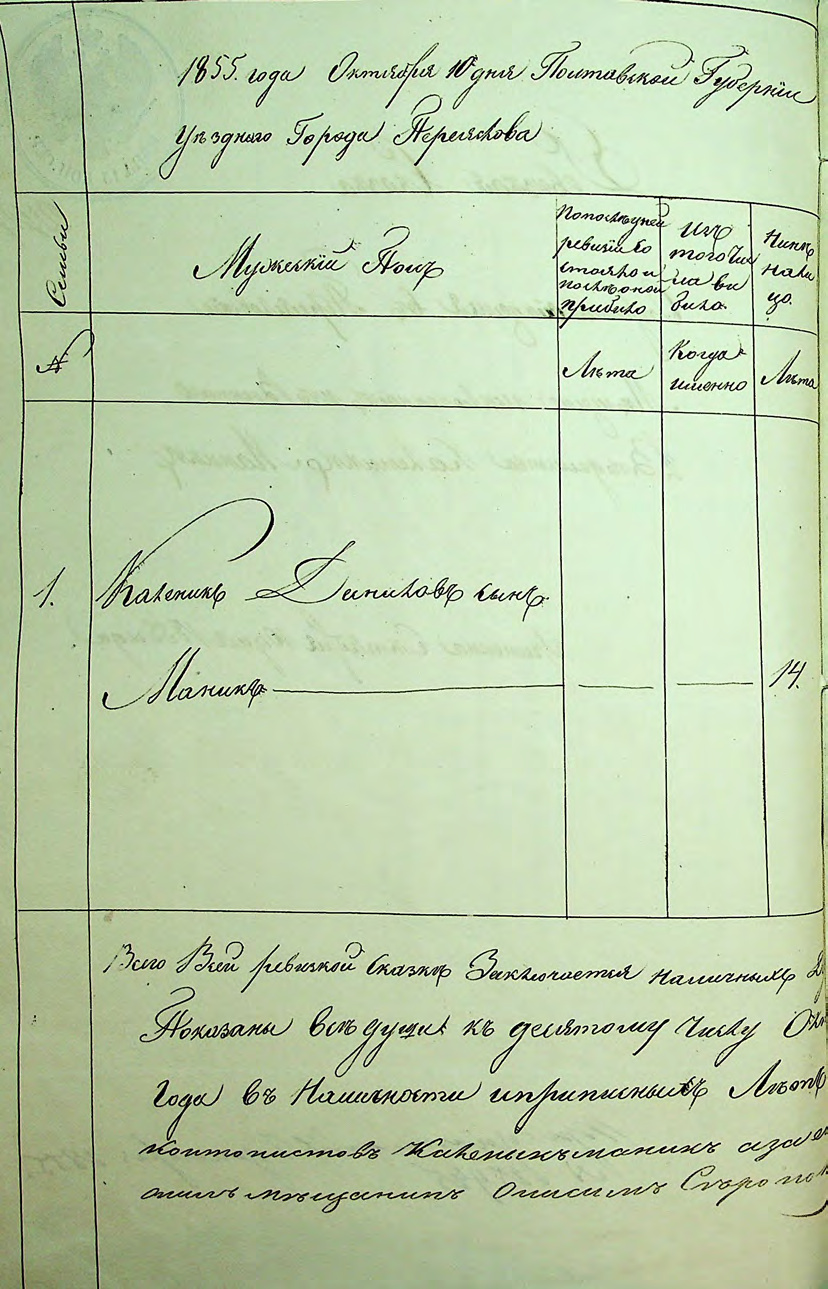 1855. года Октября 10 дня Полтавской Губернии
Уѣзднаго Города Переяслова
Семьи
Мужескій Полъ
Попослѣдней
ревизіи со
стояло и
послѣ оной
прибыло
Изъ
того чи
сла вы
было.
Нынѣ
на ли
цо.
№
Лѣта
Когда
именно
Лѣта
1. Каленикъ Даниловъ сынъ
Маникъ
14.
Всего Всей ревизкой сказкѣ Заключается наличныхъ
Показаны всѣ души къ десятому числу
Года въ Наличности
Каленикъ маникъ
мѣщанинъ